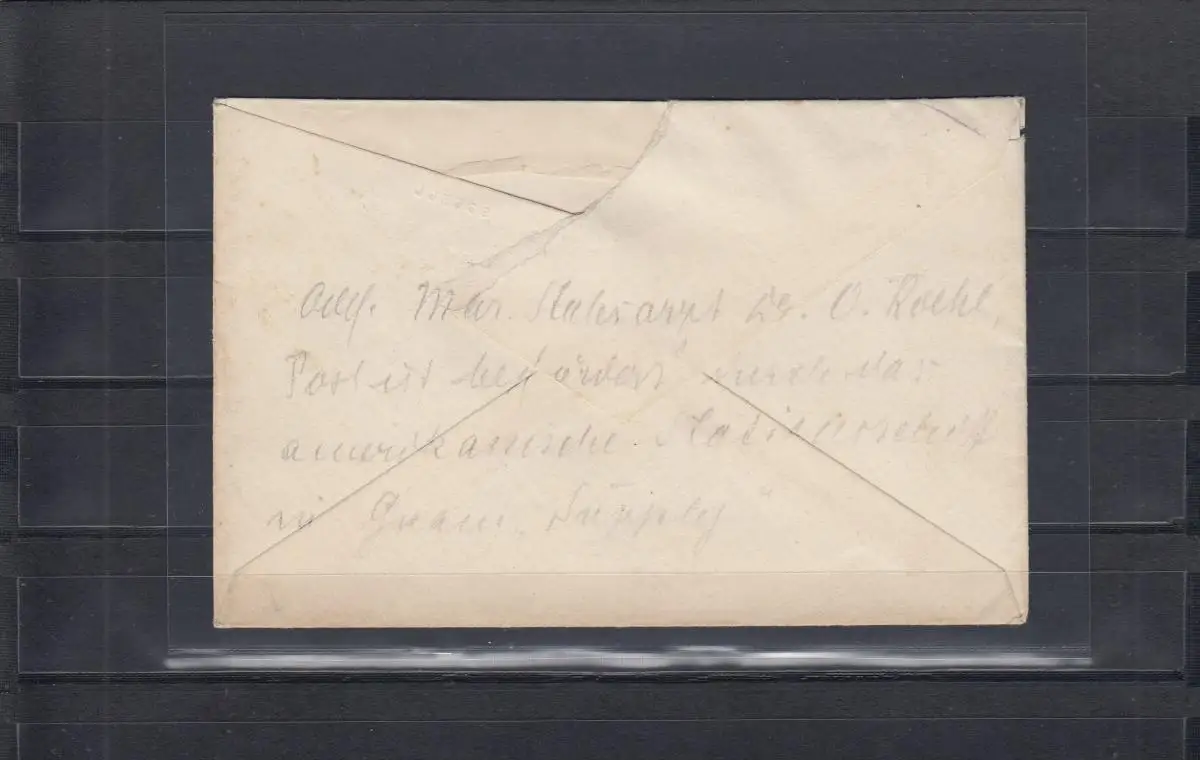 Mar. Stabsarzt Dr. O. Roehl,
Post ist befördert durch das
amerikanische Stationsschiff
in Guam „Supply"